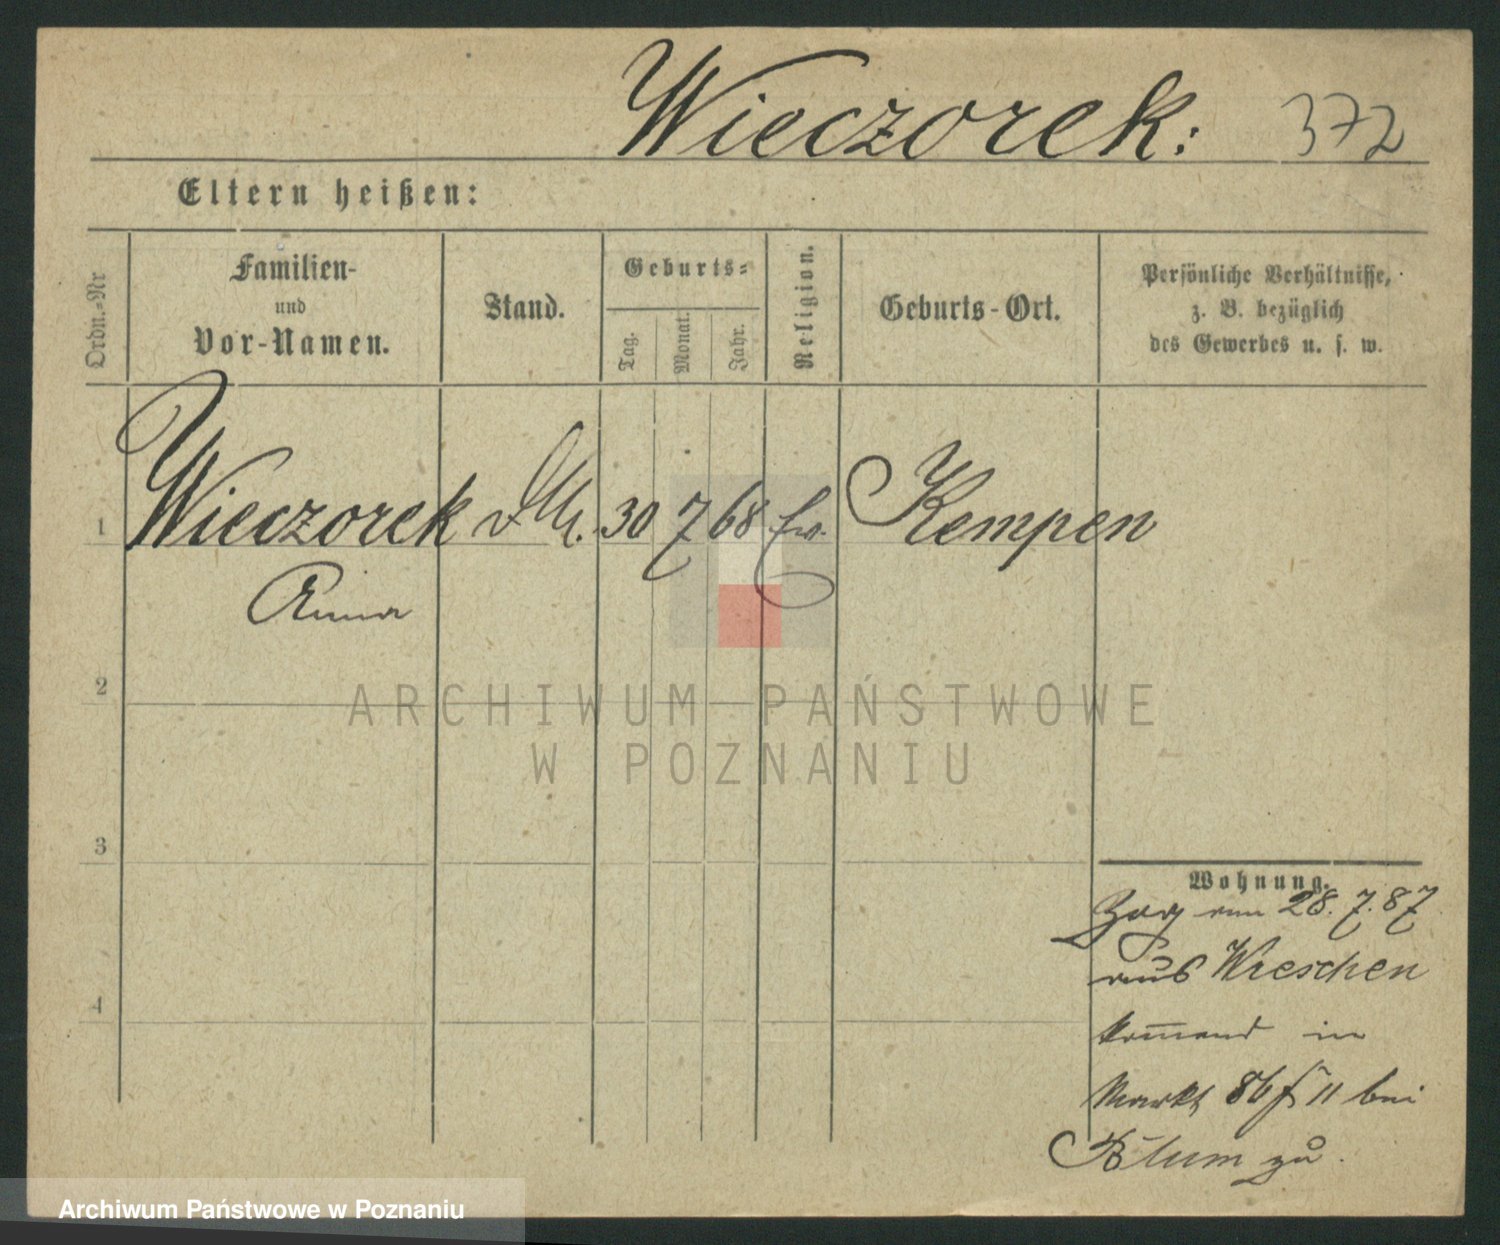 Wieczorek: 372
Eltern heißen:
Ordn.-Nr
Familien-
und
Vor-Namen.
Stand.
Geburts=
Tag.
Monat.
Jahr.
Religion.
Geburts-Ort.
Persönliche Verhältnisse,
z. B. bezüglich
des Gewerbes u. s. w.
1 Wieczorek 30 7 68 Kempen
Anna
2
ARCHIWUM PAŃSTWOWE
W POZNANIU
3
Wohnung.
Zog am 28. 7. 87
aus Wreschen
kom̅end in
4
Markt 86 11 bei
Blum zu.
Archiwum Państwowe w Poznaniu